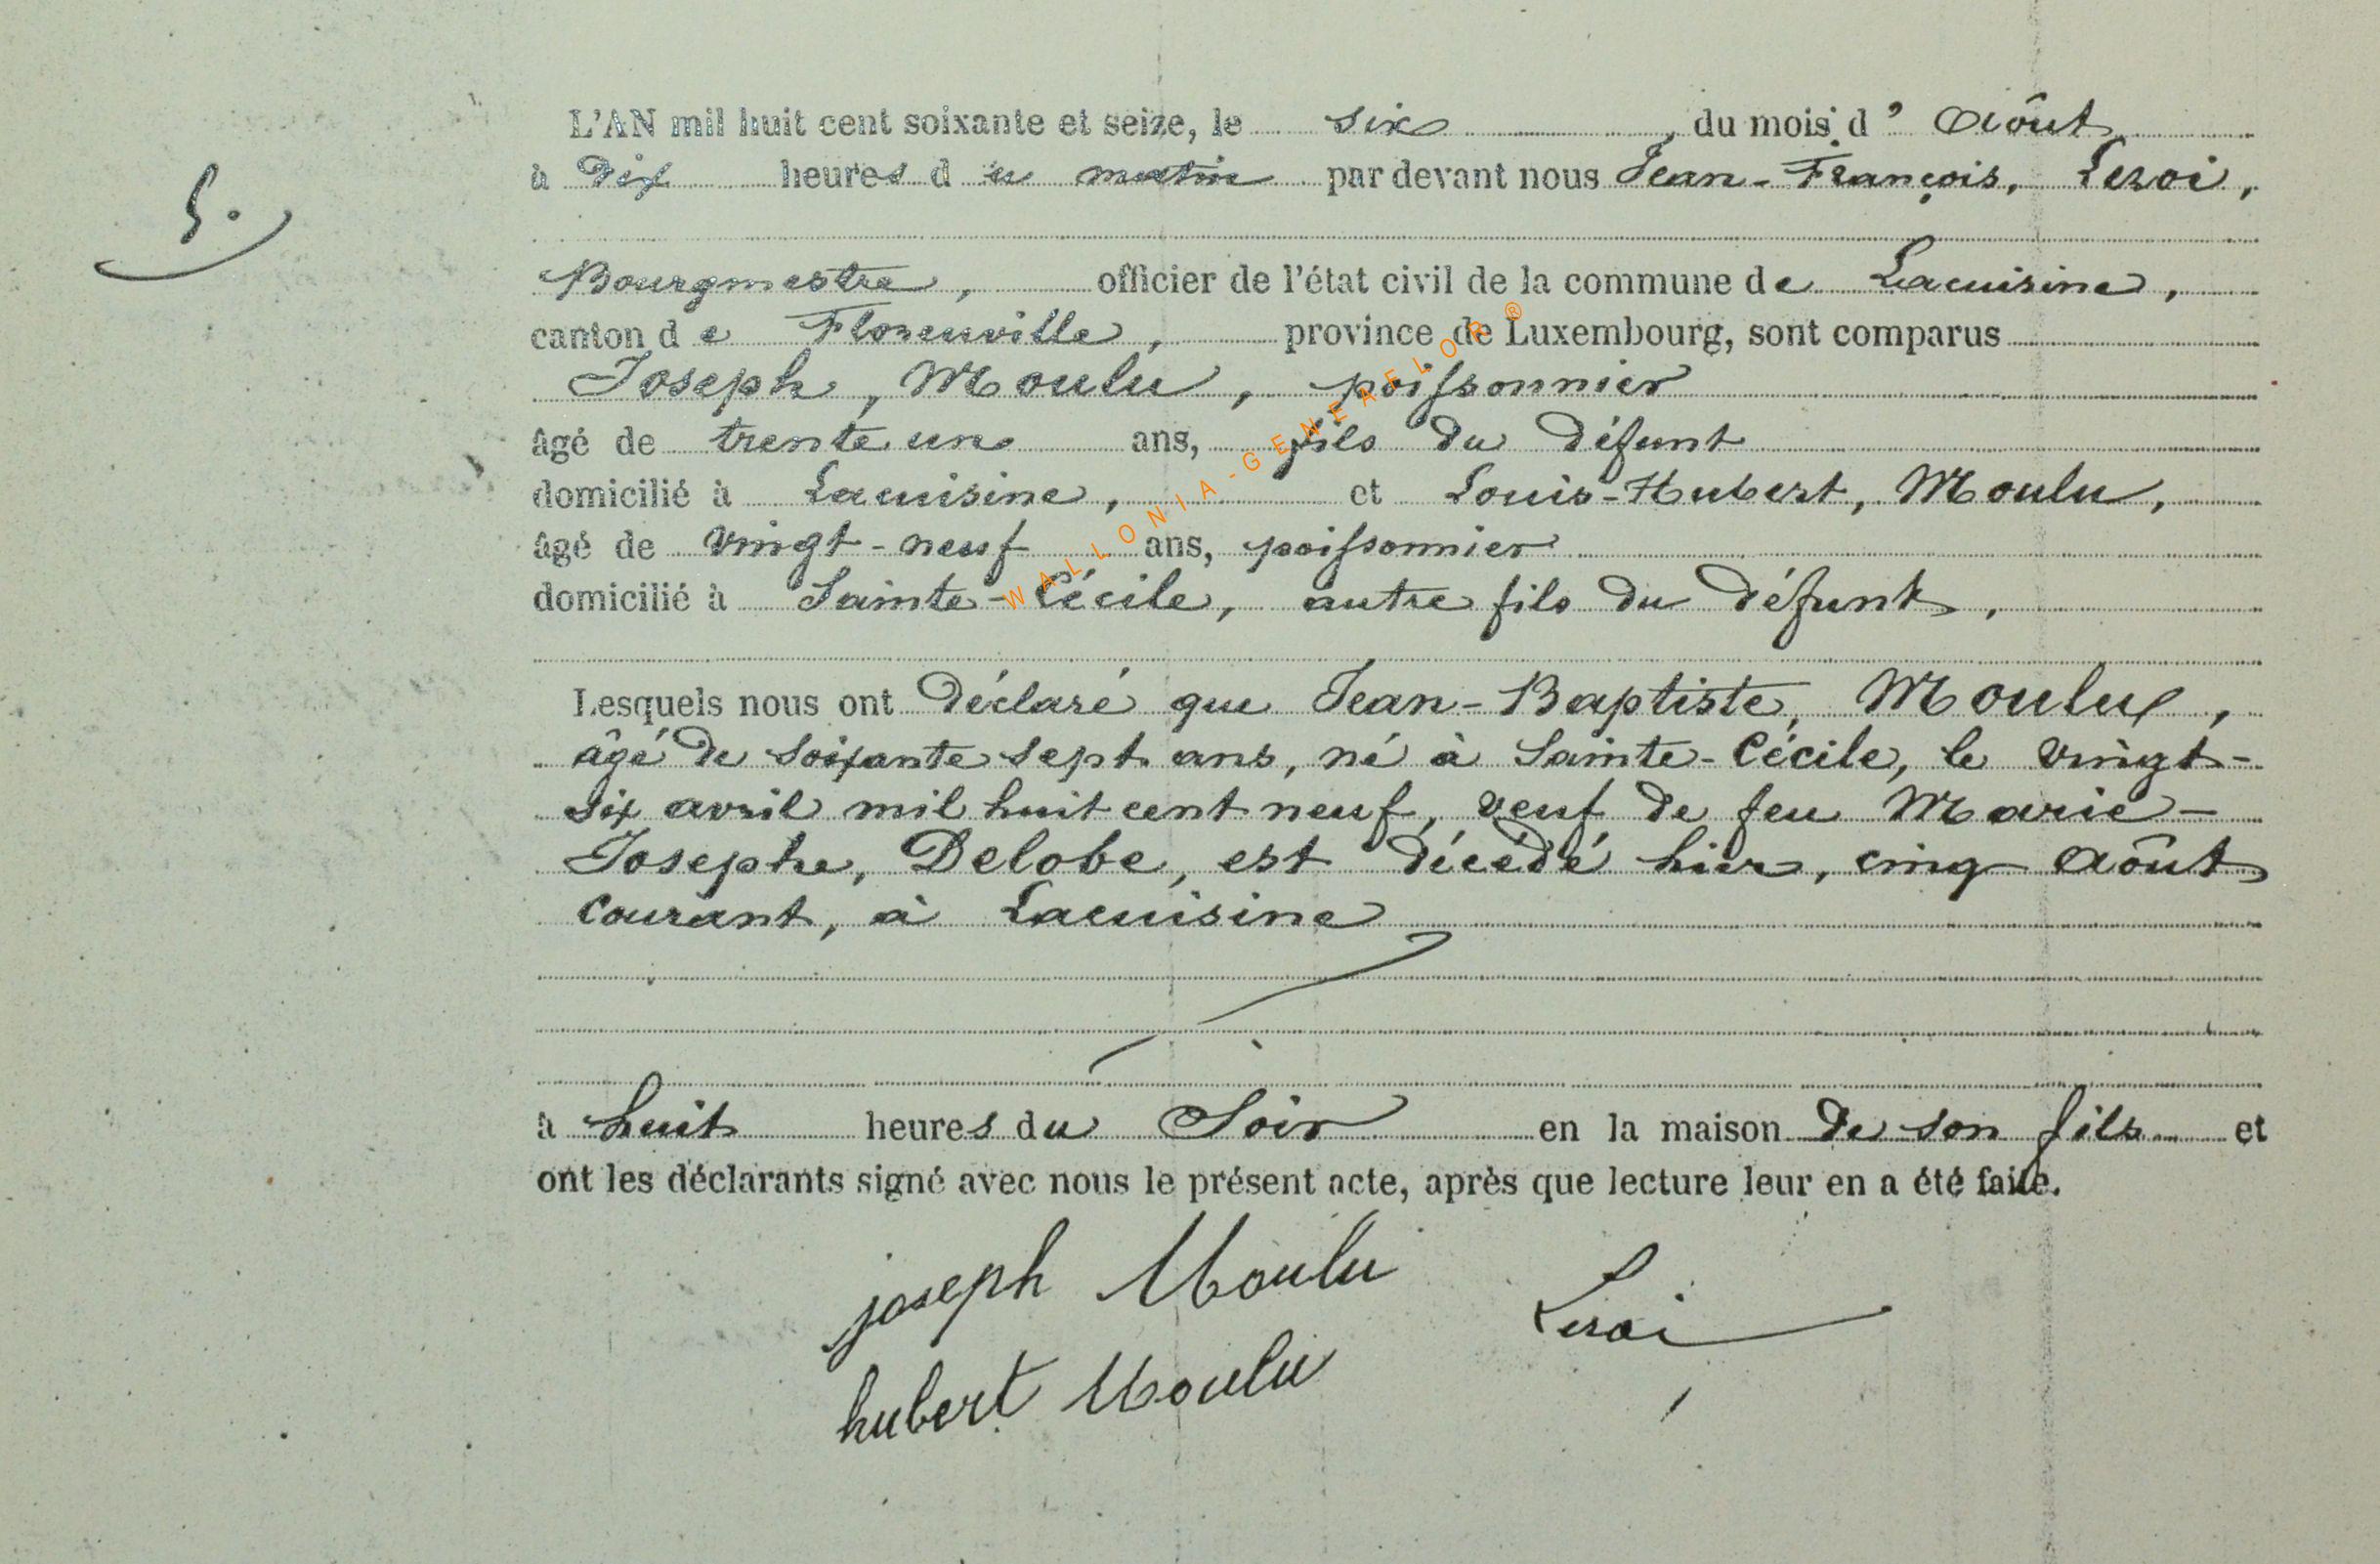 5.
L'AN mil huit cent soixante et seize, le six, du mois d'Aôut
à dix heures du matin par devant nous Jean-François, Leroi,
Bourgmestre, officier de l'état civil de la commune de Lacuisine,
canton de Florenville, province de Luxembourg, sont comparus
Joseph, Moulu, poissonnier
âgé de trente un ans, fils du défunt
domicilié à Lacuisine, et Louis-Hubert, Moulu,
âgé de vingt-neuf ans, poissonnier
domicilié à Sainte-Cécile, autre fils du défunt,
Lesquels nous ont déclaré que Jean-Baptiste, Moulu,
âgé de soixante sept ans, né à Sainte-Cécile, le vingt-
six avril mil huit cent neuf, veuf de feu Marie-
Josephe, Delobe, est décédé hier, cinq Aôut
courant, à Lacuisine
à huit heures du Soir en la maison de son fils et
ont les déclarants signé avec nous le présent acte, après que lecture leur en a été faite.
joseph Moulu
Leroi
hubert Moulu
WALLONIA-GENEAFLOR ®